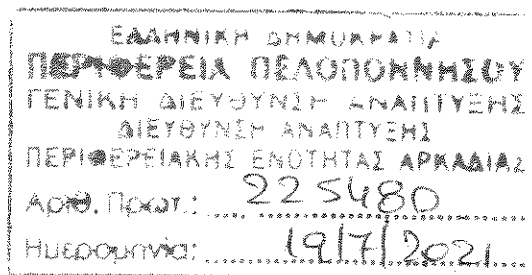 ΕΛΛΗΝΙΚΗ ΔΗΜΟΚΡΑΤΙΑ
ΠΕΡΙΦΕΡΕΙΑ ΠΕΛΟΠΟΝΝΗΣΟΥ
ΓΕΝΙΚΗ ΔΙΕΥΘΥΝΣΗ ΑΝΑΠΤΥΞΗΣ
ΔΙΕΥΘΥΝΣΗ ΑΝΑΠΤΥΞΗΣ
ΠΕΡΙΦΕΡΕΙΑΚΗΣ ΕΝΟΤΗΤΑΣ ΑΡΚΑΔΙΑΣ
Αριθ. Πρωτ.: 225480
Ημερομηνία: 19/7/2021